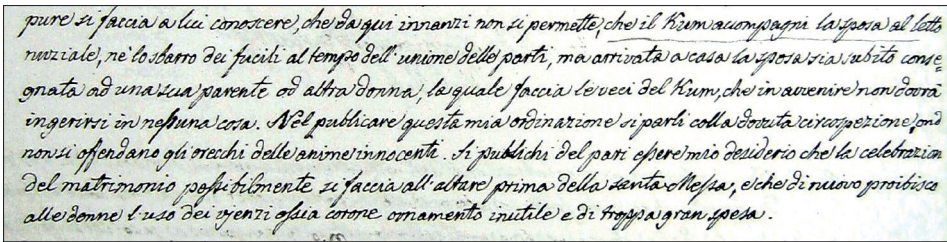 pure si faccia a lui conoscere, che da qui innanzi non si permette, che il Kum acompagni la sposa al letto
nuziale, nè lo sbarro dei fucili al tempo dell'unione delle parti, ma arrivata a casa la sposa sia subito conse=
gnata ad una sua parente od altra donna, la quale faccia le veci del Kum, che in avvenire non dovrà
ingerirsi in nessuna cosa. Nel publicare questa mia ordinazione si parli colla dovuta circospezione, ond
non si offendano gli orecchi delle anime innocenti. Si publichi del pari essere mio desiderio che la celebrazion
del matrimonio possibilmente si faccia all'altare prima della santa Messa, e che di nuovo proibisco
alle donne l'uso dei vjenzi ossia corone ornamento inutile e di troppa gran spesa.